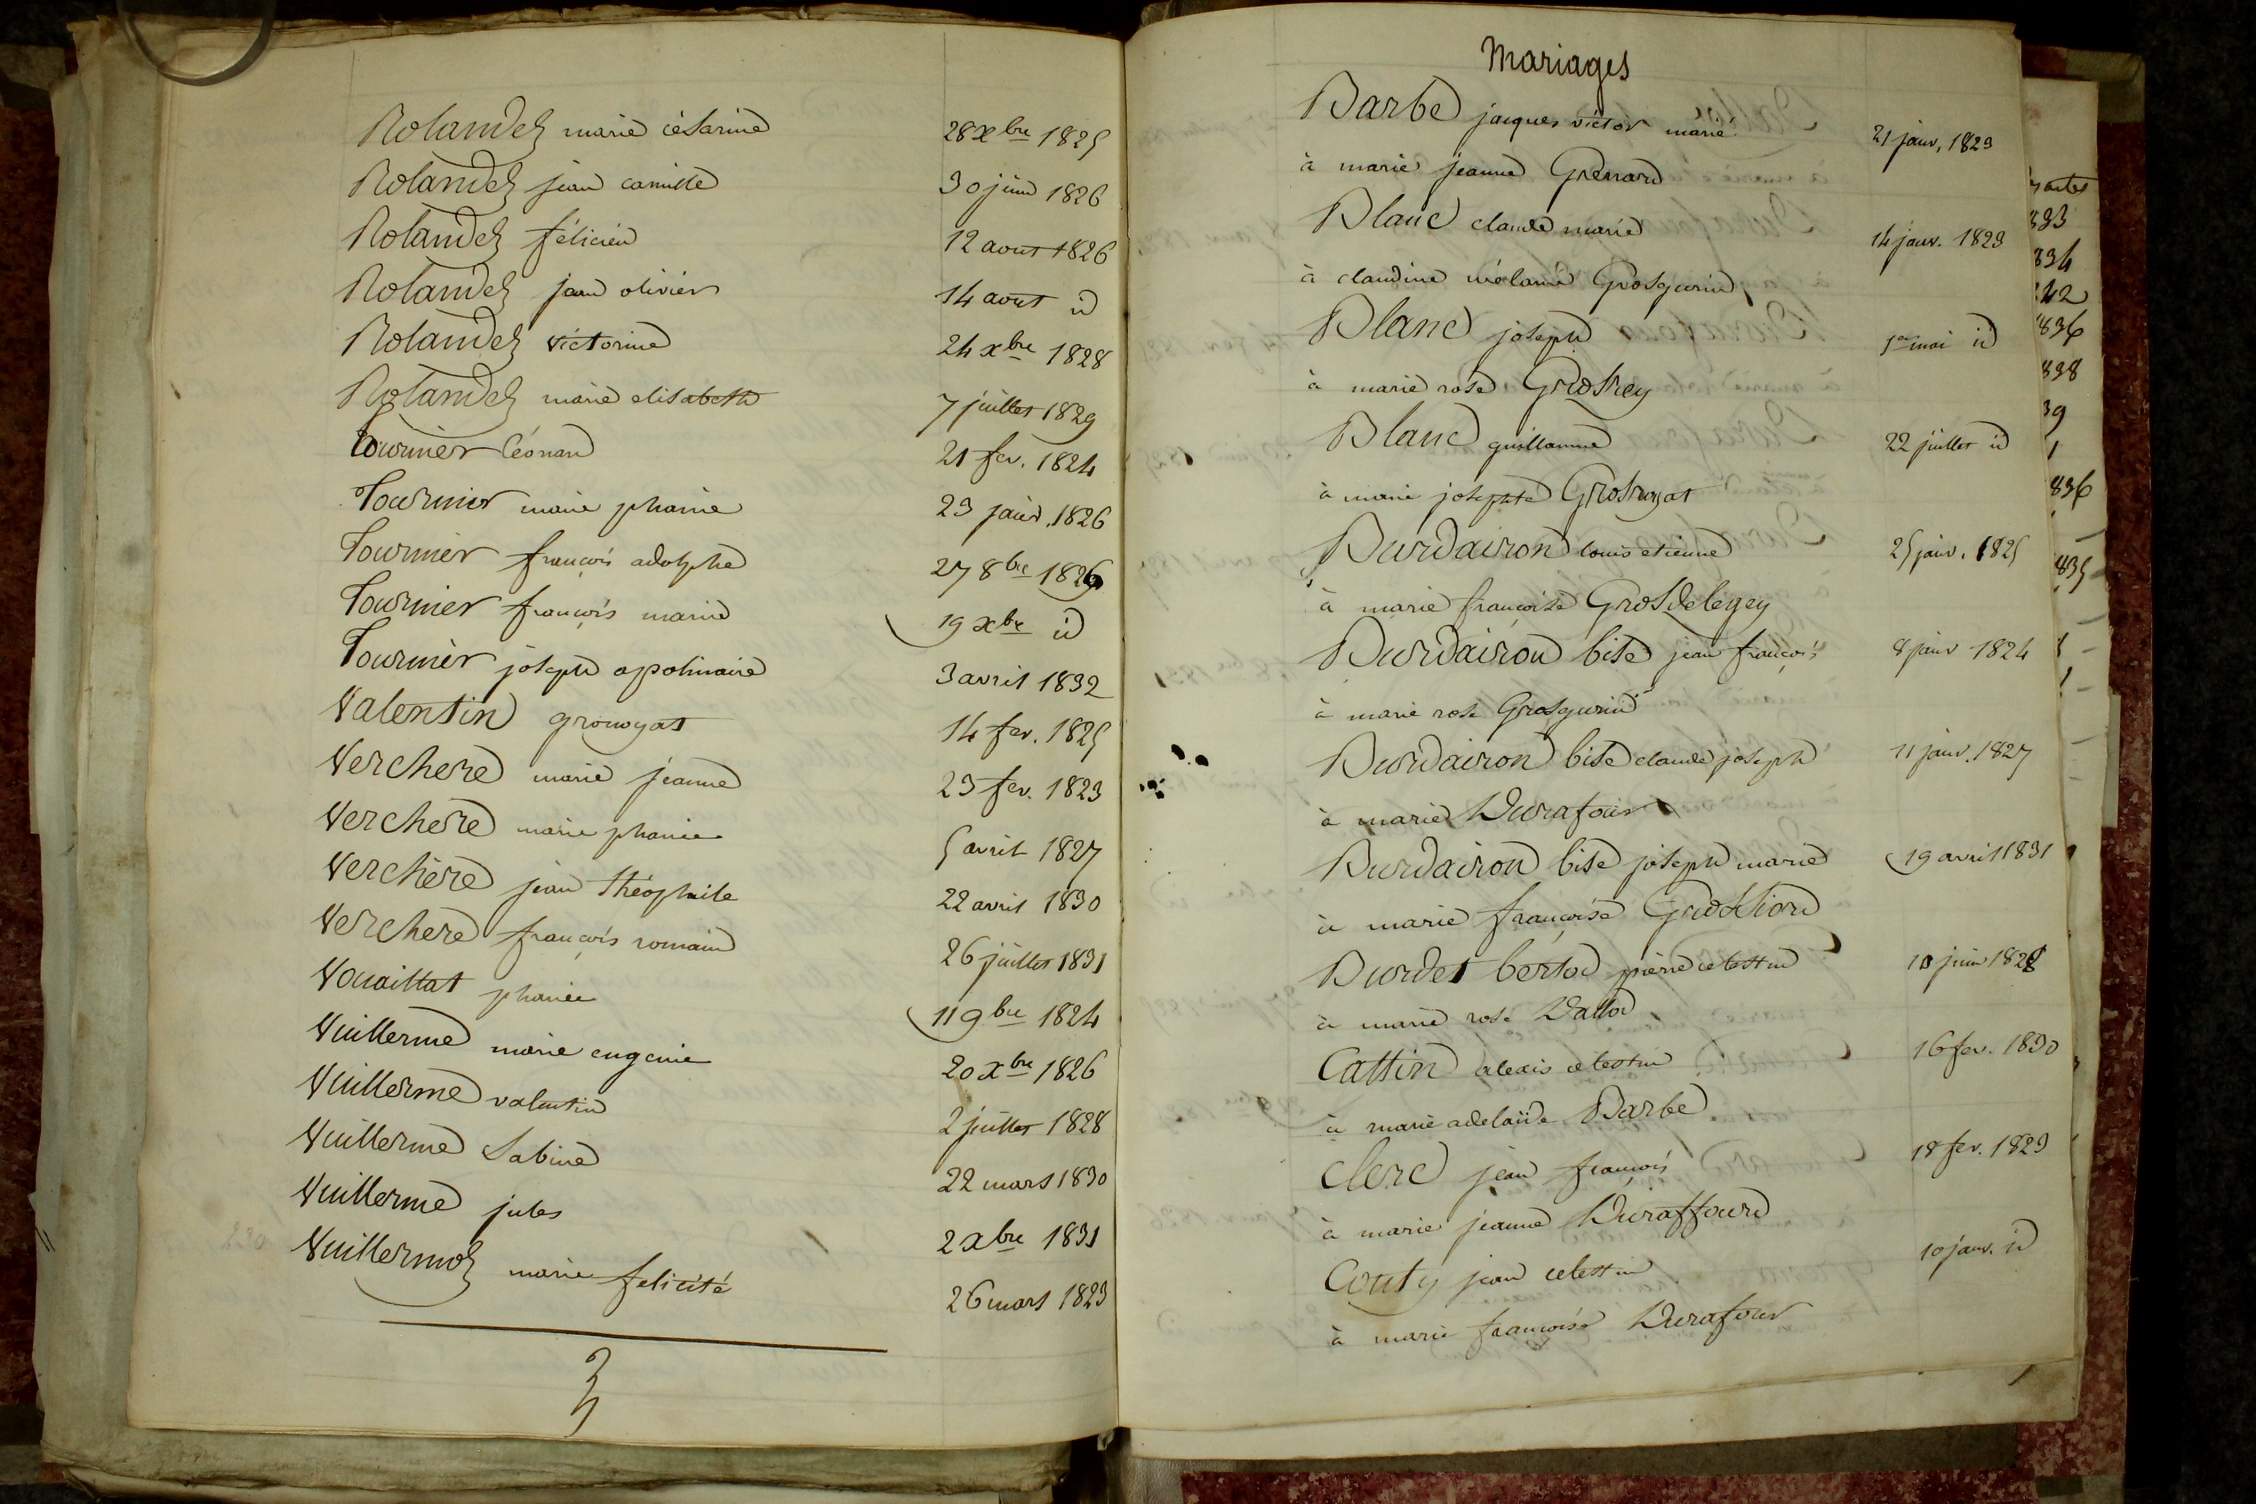 Rolandez marie césarine 28 xbre 1825
Rolandez jean camille 30 juin 1826
Rolandez félicien 12 aout 1826
Rolandez jean olivier 14 aout id
Rolandez victorine 24 xbre 1828
Rolandez marie elisabeth 7 juillet 1829
Tournier Léonard 21 fev. 1824
Tournier marie phanie 23 janv. 1826
Tournier françois adolphe 27 8bre 1826
Tournier françois marie 19 xbre id
Tournier joseph apolinaire 3 avril 1832
Valentin grouoyat 14 fev. 1825
Verchere marie jeanne 23 fev. 1823
Verchere marie phanie 5 avril 1827
Verchère jean théophile 22 avril 1830
Verchere françois romain 26 juillet 1831
Vouaillat phanie 11 9bre 1824
Vuillerme marie eugenie 20 xbre 1826
Vuillerme valentin 2 juillet 1828
Vuillerme Sabine 22 mars 1830
Vuillerme jules 2 xbre 1831
Vuillermoz marie felicité 26 mars 1823
Mariages
Barbe jacques victor marie 21 janv. 1823
à marie jeanne Grenard
Blanc claude marie 14 janv. 1823
à claudine mélanie Grosgurin
Blanc joseph 1er mai id
à marie rose Grosrey
Blanc guillaume 22 juillet id
à marie josephte
Burdairon louis etienne 25 janv. 1825
à marie françoise Grosdelegey
Burdairon bise jean françois 8 janv 1824
à marie rose Grosgurin
Burdairon bise claude joseph 11 janv. 1827
à marie Durafour
Burdairon bise joseph marie 19 avril 1831
à marie françoise Grossiord
Burdet bertod pierre celestin 10 juin 1828
à marie rose Dallod
Cattin alexis celestin 16 fev. 1830
à marie adelaïde Barbe
Clerc jean françois 18 fev. 1823
à marie jeanne Duraffourd
Couty jean celestin 10 janv. id
à marie françoise Durafour
834
836
838
39
836
835